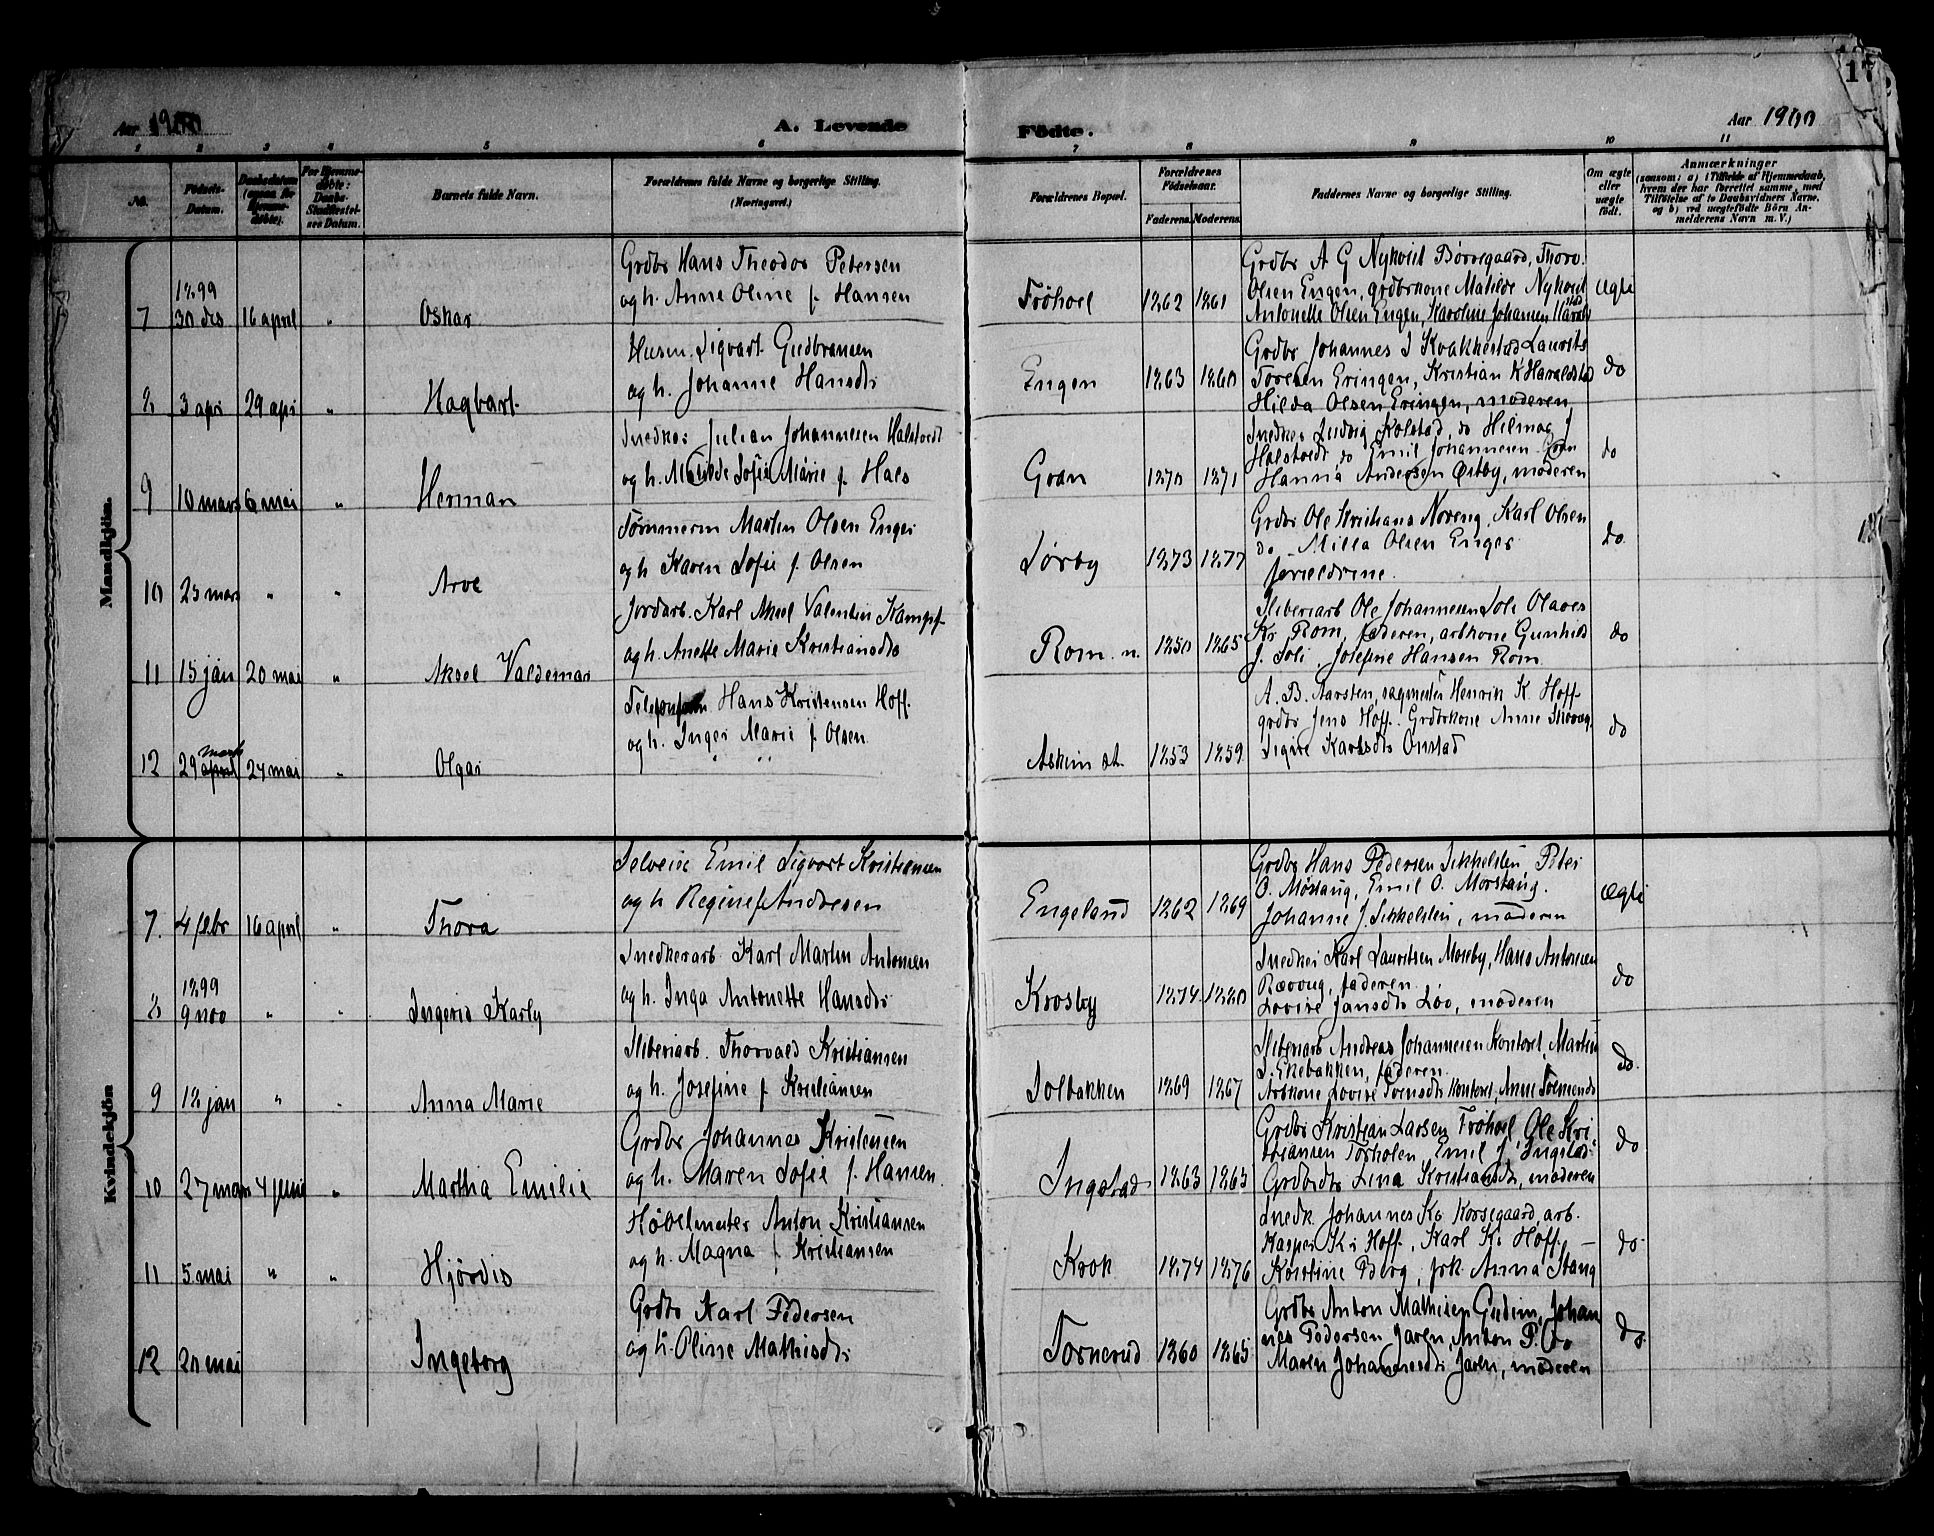 Aar 1900
A. Levende
Födte.
Aar 1900
17
1 2 3 4 5 6 7 8 9 10 11
No.
Födsels-
Datum.
Daabsdatum
For Hjemme-
döbte:
Daabs-
Stadfæstel-
ses Datum.
Barnets fulde Navn.
Forældrenes fulde Navne og borgerlige Stilling.
(Næringsvei.)
Forældrenes Bopæl.
Forældrenes
Födselsaar.
Faderens. Moderens.
Faddernes Navne og borgerlig Stilling.
Om ægte
eller
uægte
födt.
Anmærkninger
(saasom: a) i Tilfælde af Hjemmedaab,
hvem der har forrettet samme, med
Tilföielse af to Daabsvidners Navne,
og b) ved uægtefödte Börn An-
melderens Navn m. V.)
Mandkjön.
7
1899
30 des
16 april
"
Oskar
Grdbr Hans Theodor Petersen
og h. Anne Oline f. Hansen
Fröhoel
1862
1861
Grdbr A G Nykvist Börsegaard, Thorv.
Olsen Engen, grdbrkone Matilde Nykvist
Antonette Olsen Engen, Karoline Johansen
Ægte
8
3 apr
29 apr
"
Hagbart
Husm. Sigvart Gudbransen
og h. Johanne Hansdtr
Engen
1863
1860
Grdbr Johannes J Kvakkestad Laurits
Toresen Eringen, Kristian K Haraldstad
Hilda Olsen Eringen, moderen
do
9
10 mars
6 mai
"
Herman
Snedker Julian Johannesen Halstvedt
og h. Matilde Sofie Marie f. Hals
Gran
1870
1871
Snedker Ludvig Kolstad, do Hilmar J
Halstvedt do Emil Johannesen Gran
Hanna Andersen Østby, moderen
do
10
25 mars
"
"
Arve
Tømmerm Martin Olsen Enger
og h Karen Sofie f. Olsen
Sørby
1873
1877
Grdbr Ole Kristians Noreng, Karl Olsen
do Milla Olsen Enger
forældrene.
do
11
15 jan
20 mai
"
Aksel Valdemar
Jordarb. Karl Aksel Valentin Kampf
og h. Anette Marie Kristiansdtr
Rom. n.
1850
1865
Sliberiarb Ole Johannesen Soli Olaves
Kr Rom, faderen, arbkone Gunhild
J. Soli, Josefine Hansen Rom
do
12
29 mars
april
24 mai
"
Olgar
Hans Kristensen Hoff
og h. Inger Marie f. Olsen
Askim st.
1853
1859
A. B. Aarsten, sagmester Henrik K. Hoff
grdbr Jens Hoff. Grdbrkone Anne
Sigire Karlsdtr Onstad
do
Kvindekjön
7.
4 febr
16 april
"
Thora
Selveier Emil Sigvart Kristiansen
og h Regine f Andresen
Engeland
1862
1869
Grdbr Hans Pedersen Sekkelsten Peter
O. Mørstaug, Emil O. Mørstaug.
Johanne J. Sekkelsten, moderen
Ægte
8
1899
9 nov
"
"
Ingerid Karly
Snedkerarb Karl Martin Antonsen
og h. Inga Antonette Hansdtr
Krosby
1874
1880
Snedker Karl Lauritsen Moseby, Hans Antonsen
Rævaug, faderen.
Lovise Jansdtr Løv, moderen
do
9
12 jan
"
"
Anna Marie
Sliberiarb. Thorvald Kristiansen
og h. Josefine f Kristiansen
Solbakken
1869
1867
Sliberiarb Andreas Johannesen Kontoret, Martin
S. Ekebakken, faderen
Arbkone Lovise Svensdtr Kontoret, Anne
do
10
27 mars
4 juni
"
Martha Emilie
Grdbr Johannes Kristensen
og h. Maren Sofie f. Hansen
Ingstad
1863
1865
Grdbr Kristian Larsen Frøhoel, Ole Kri
stiansen Torholen, Emil J. Ingstad
Grdbrdtr Lina Kristiansdtr, moderen
do
11
5 mai
"
"
Hjördis
Høvelmester Anton Kristiansen
og h. Magna f. Kristiansen
Krok
1874
1876
Snedk. Johannes Kr Korsegaard, arb.
Kasper Kr Hoff, Karl Kr Hoff, –
Kristine Berg, frk. Anna Stang
do
12
20 mai
Ingeborg
Grdbr Karl Pedersen
og h. Oline Mathisdtr
Tornerud
1860
1865
Grdbr Anton Mathisen Gudim, Johan
nes Pedersen Jaren, Anton P. do
Maren Johannesdtr Jaren, moderen
do